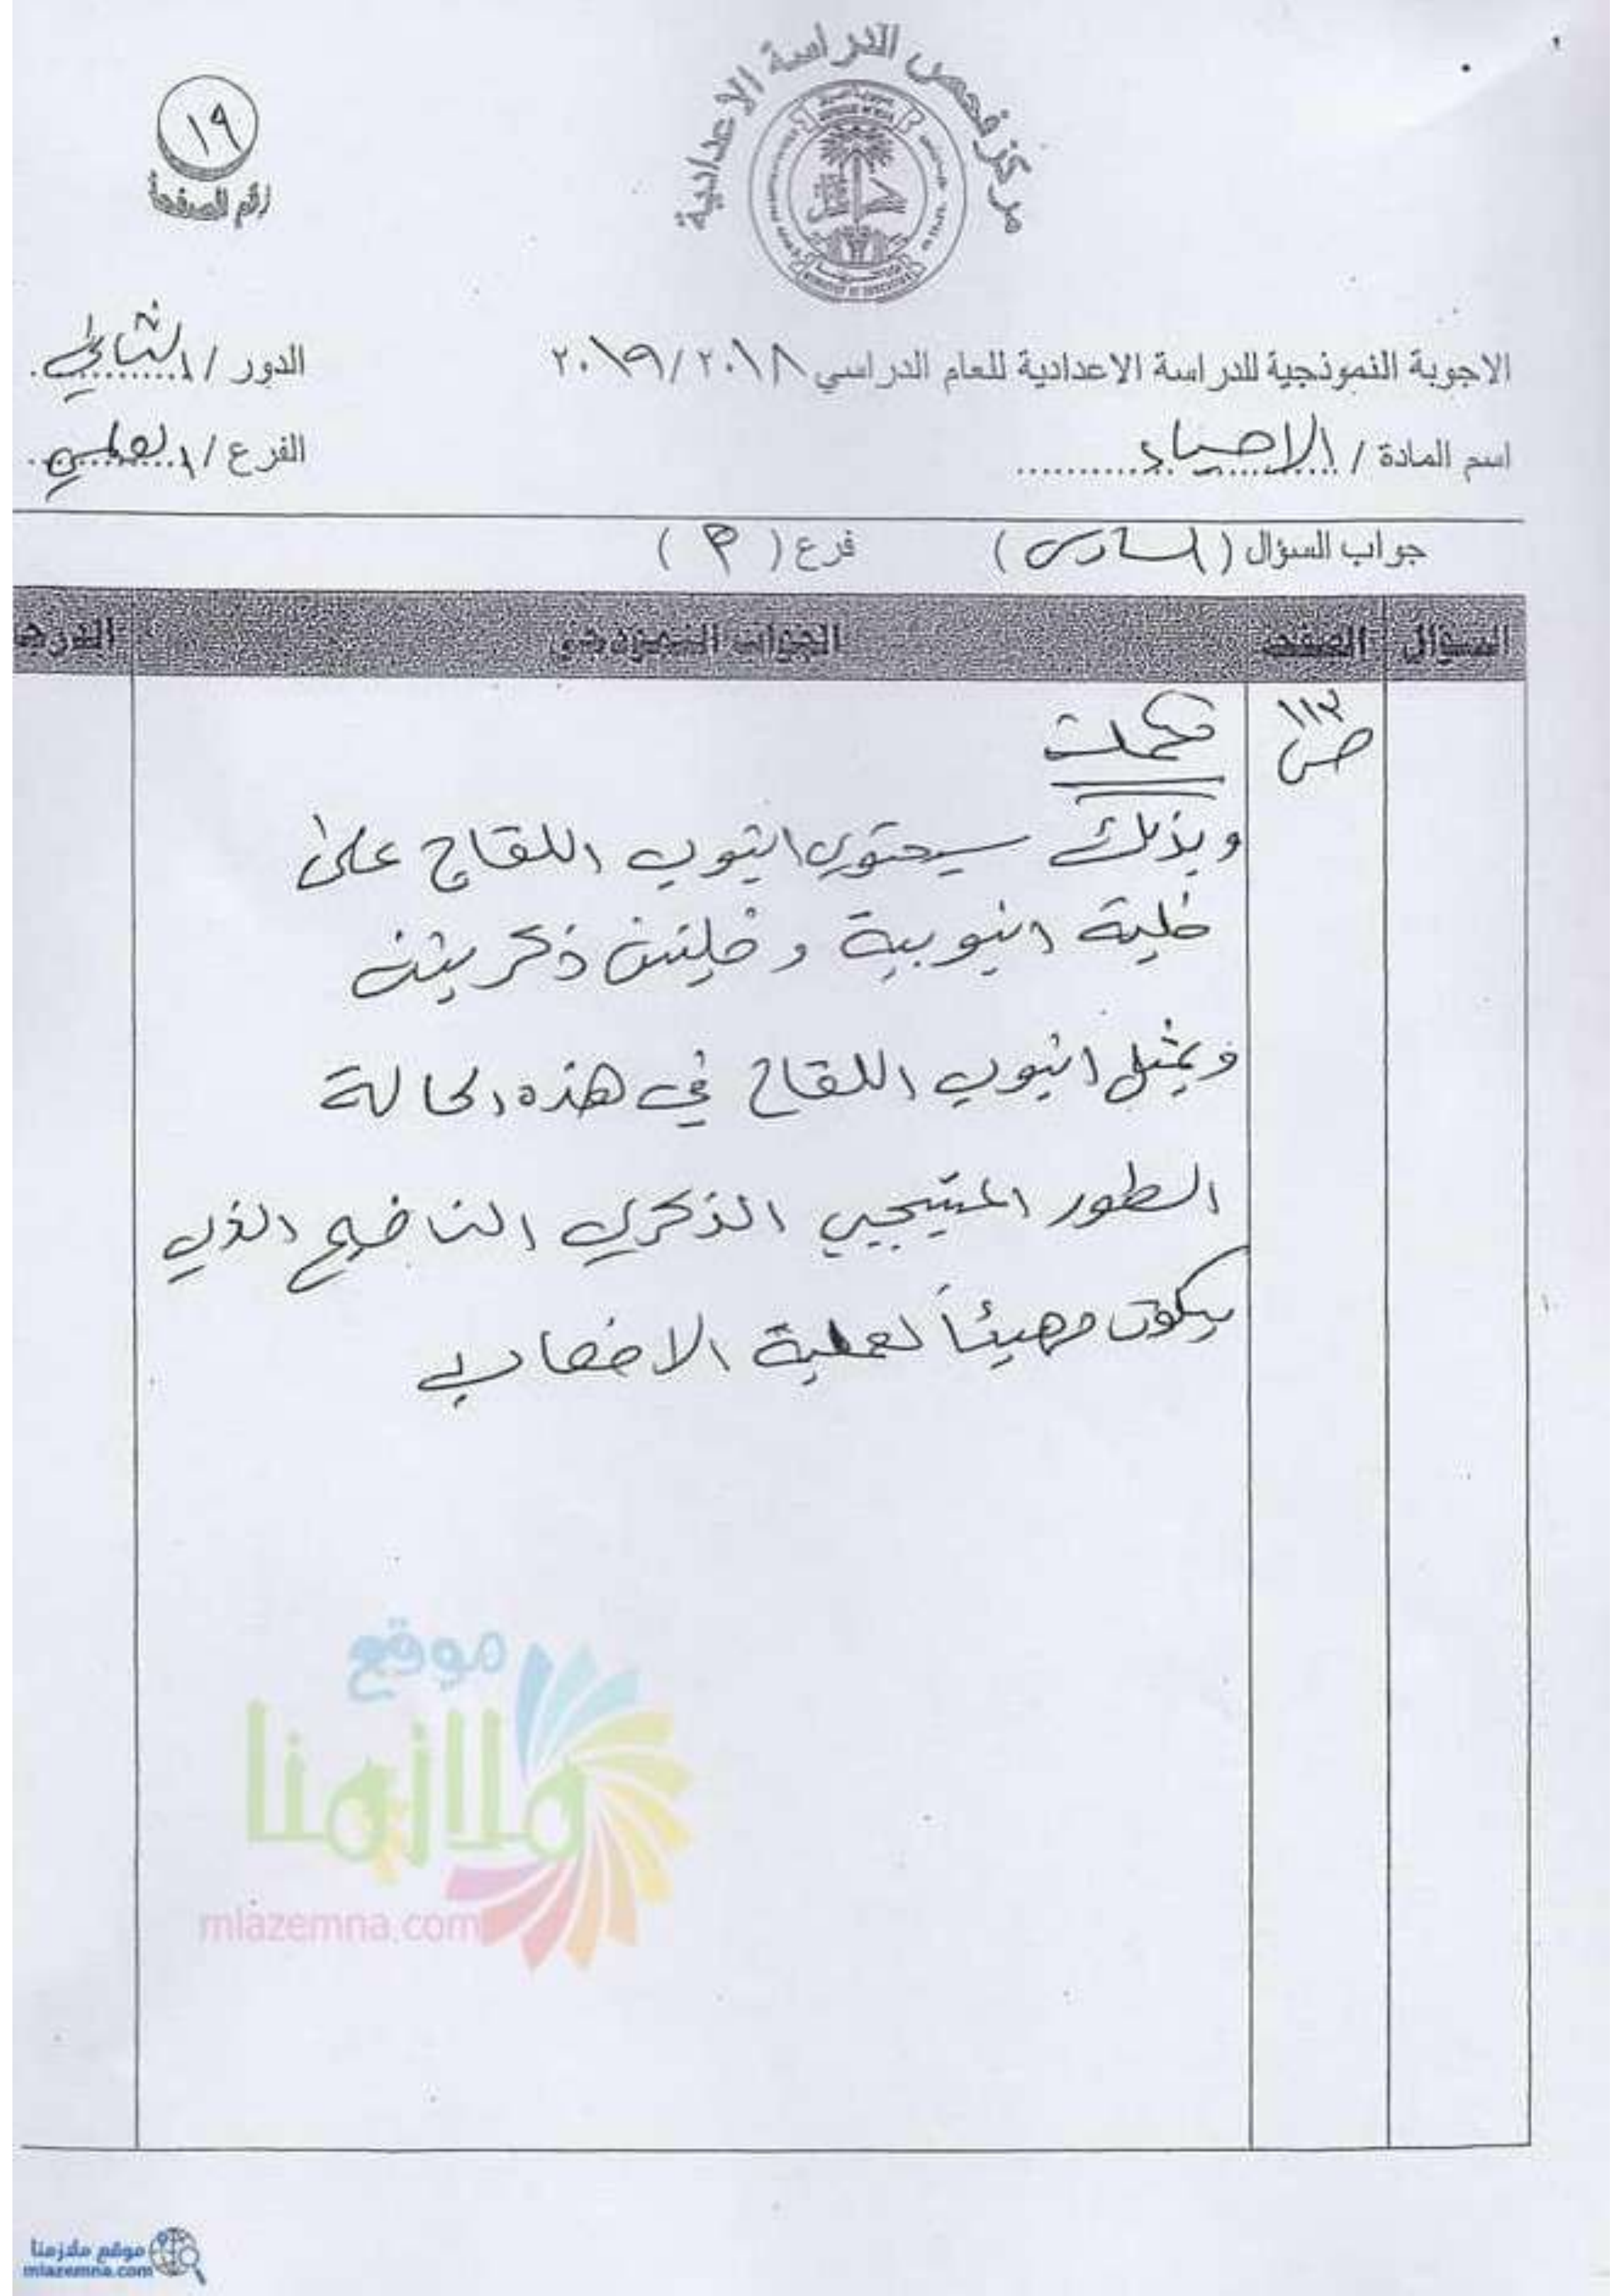 مركز فحص الدراسة الاعدادية
١٩
رقم الصفحة
الاجوبة النموذجية للدراسة الاعدادية للعام الدراسي ٢٠١٩/٢٠١٨
الدور / الثاني
اسم المادة / الاحياء
الفرع / العلمي
جواب السؤال ( السادس ) فرع ( )
السؤال الصفحة الجواب النموذجي الدرجة
ص ١١٣
تكملت
وبذلك سيحتوي انبوب اللقاح على
خلية انبوبية و خليتين ذكريتين
ويمثل انبوب اللقاح في هذه الحالة
الطور المشيجي الذكري الناضج الذي
يكون مهيئاً لعملية الاخصاب
موقع
ملازمنا
mlazemna.com
موقع ملازمنا
mlazemna.com